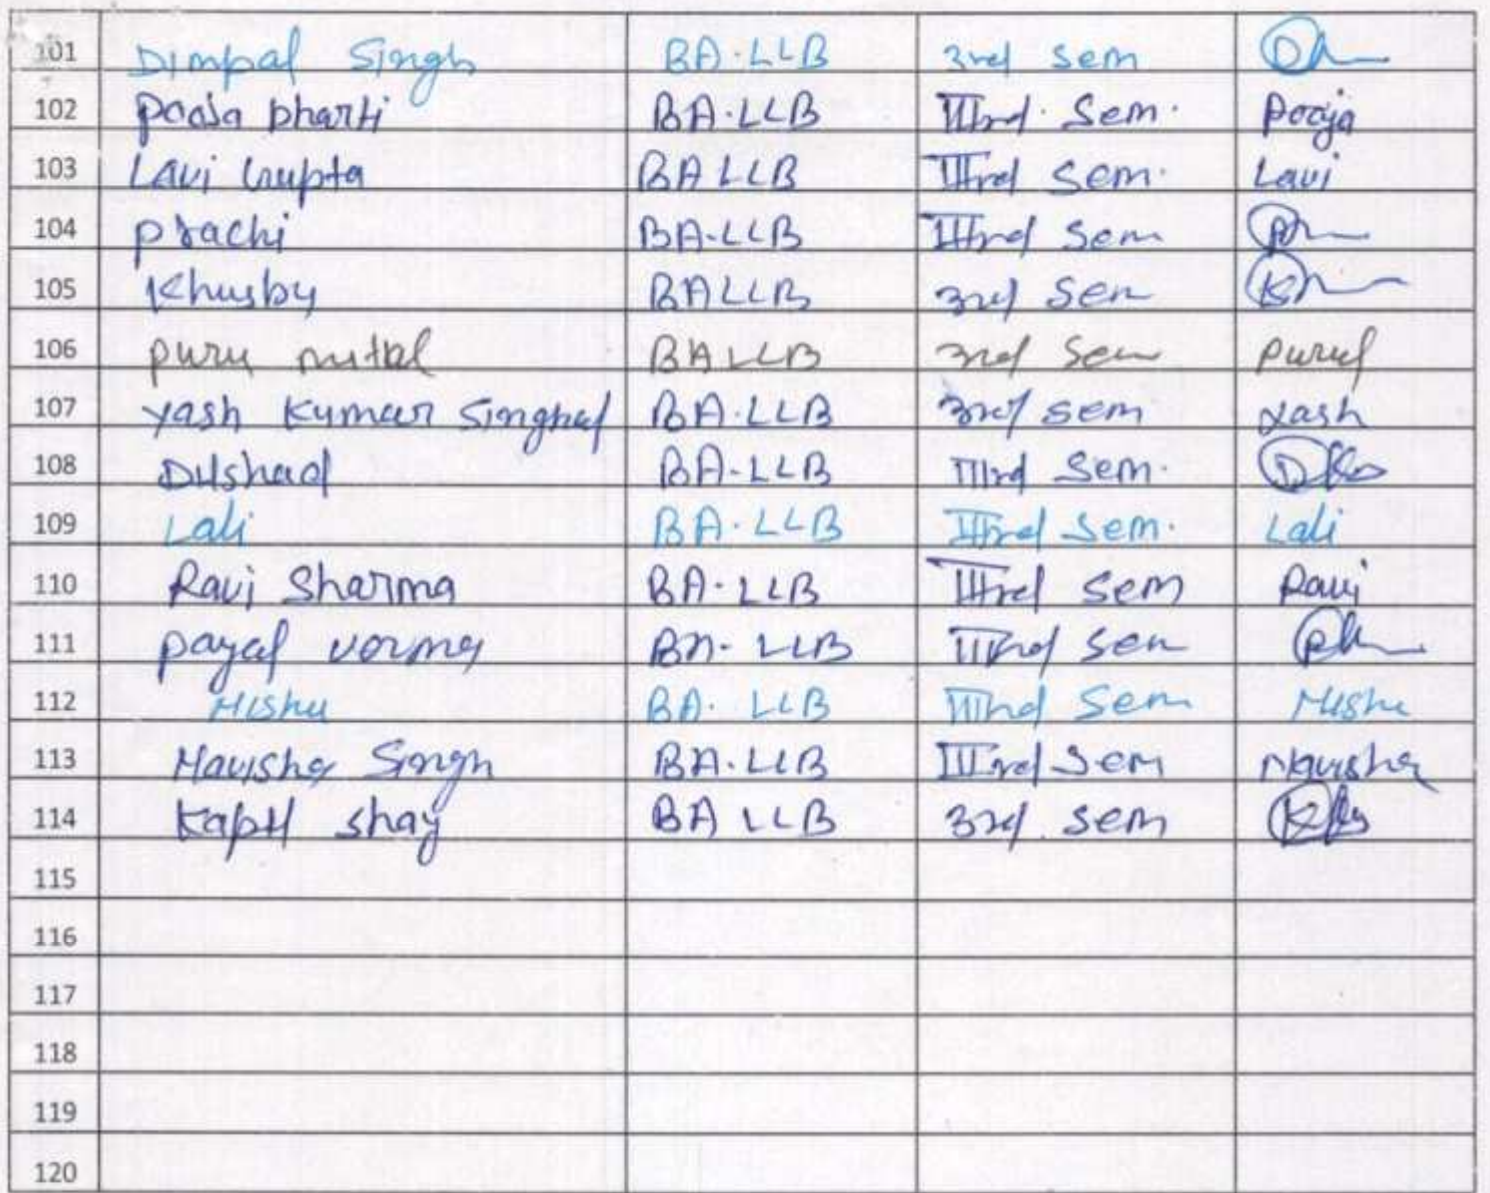 101 Dimpal Singh BA.LLB 3rd Sem
102 Pooja bharti BA.LLB IIIrd. Sem. Pooja
103 Lavi Gupta BALLB IIIrd Sem. Lavi
104 Prachi BA-LLB IIIrd Sem
105 Khushy BALLB 3rd Sem
106 Puru mittal BALLB 3rd Sem
107 Yash Kumar Singhal BA.LLB 3rd sem Yash
108 Dilshad BA-LLB IIIrd Sem.
109 Lali BA.LLB IIIrd Sem. Lali
110 Ravi Sharma BA.LLB IIIrd Sem Ravi
111 Payal verma BA-LLB IIIrd Sem
112 BA. LLB IIIrd Sem
113 Singh BA.LLB IIIrd Sem
114 Kapil BA LLB 3rd. Sem
115
116
117
118
119
120